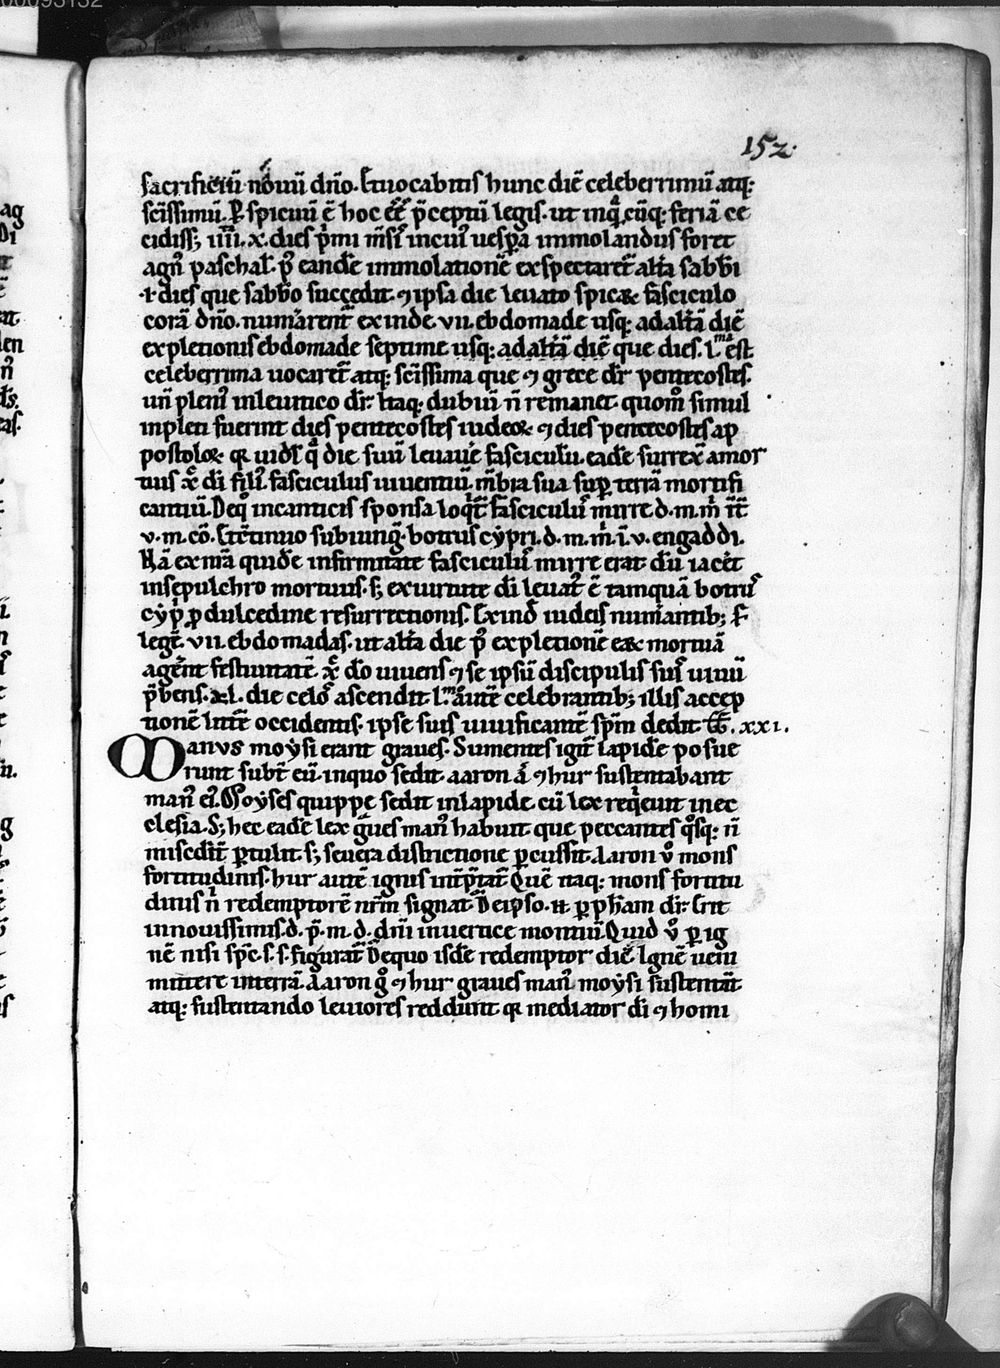 152.
sacrificiũ nouũ dño. Et uocabitis hunc diẽ celeberrimũ atq;
scissimũ. Pspicuũ ẽ hoc eẽ pceptũ legis. ut inqcũq; feriã ce
cidiss; iiii. x. dies pmi msis in cui uespa immolandus foret
agn paschal. p eandẽ immolationẽ exspectaret alta sabbi
.i. dies que sabbo succedit. ⁊ ipsa die leuato spicaꝝ fasciculo
corã dño. numarent exinde. vii. ebdomade usq; ad altã diẽ
expletionis ebdomade septime usq; ad altã diẽ que dies. l.ma est
celeberrima uocaret atq; scissima que ⁊ grece dr pentecostes.
un pleni in leuitico dr. Itaq; dubiũ ñ remanet quom simul
inpleti fuerint dies pentecostes iudeoꝝ. ⁊ dies pentecostes ap
postoloꝝ. qꝛ uidl q die suũ leuauẽ fasciculũ. eadẽ surrex amor
tuis xc di fili. fasciculus uiuentiũ. mbra sua sup terrã mortifi
cantiũ. Deq in canticis sponsa loqt fasciculus mirre d. m. m. i. it
v. m. cõ. Et cõtinuo subiung. botrus cypri. d. m. m. i. v. engaddi.
Nã ex mia quidẽ infirmitate fasciculus mirre erat. dũ iacet
in sepulchro mortuus. s; ex uirtute di leuat ẽ tamquã botrus
cypi p dulcedine resurrectionis. Exind iudeis numantib; s
leget. vii. ebdomadas. ut alta die p expletionẽ eaꝝ mortuã
agent festiuitatẽ. xc do uiuens ⁊ se ipsũ discipulis suis uiuũ
pbens. xl. die celos ascendit l.ma autẽ celebrantib; illis accep
tionẽ littẽ occidentis. ipse suis uiuificantẽ spm dedit. XXI.
Manus moysi erant graues. Sumentes igit lapidẽ posue
runt subt eũ. in quo sedit. aaron at ⁊ hur sustentabant
man ei. Moyses quippe sedit in lapide. cũ lex reqeuit in ec
clesia. S; hec eadẽ lex gues man habuit que peccantes qsq; ñ
misedit ptulit. s; seuera districtione pcussit. Aaron v mons
fortitudinis. hur autẽ ignis intptat. Quẽ itaq; mons fortitu
dinis ñ redemptorẽ nrm signat. De ipso. n. p pham dr. Erit
in nouissimis. d. p. m. d. dni in uertice montiũ. Quid v p ig
nẽ nisi spc. s. s. figurat. De quo isdẽ redemptor dic. Ignẽ ueni
mittere in terrã. Aaron g ⁊ hur graues man moysi sustentat
atq; sustentando leuiores reddunt. qꝛ mediator di ⁊ homi